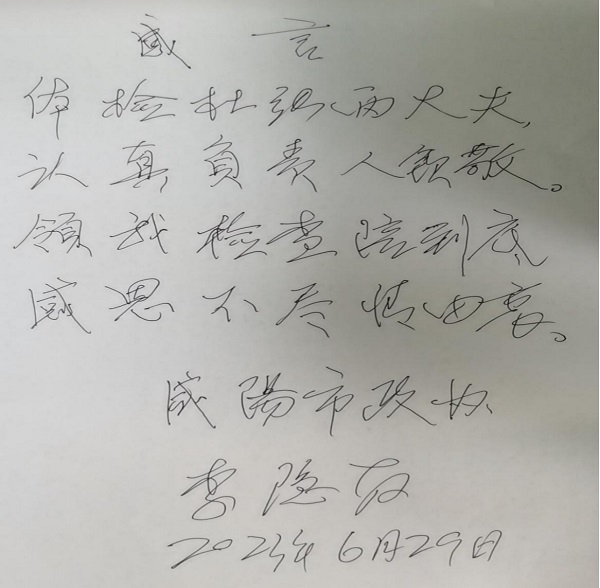 感言
体检杜张两大夫,
认真负责人钦敬。
领我检查陪到底,
感恩不尽情由衷。
咸阳市政协
李隐存
2023年6月29日